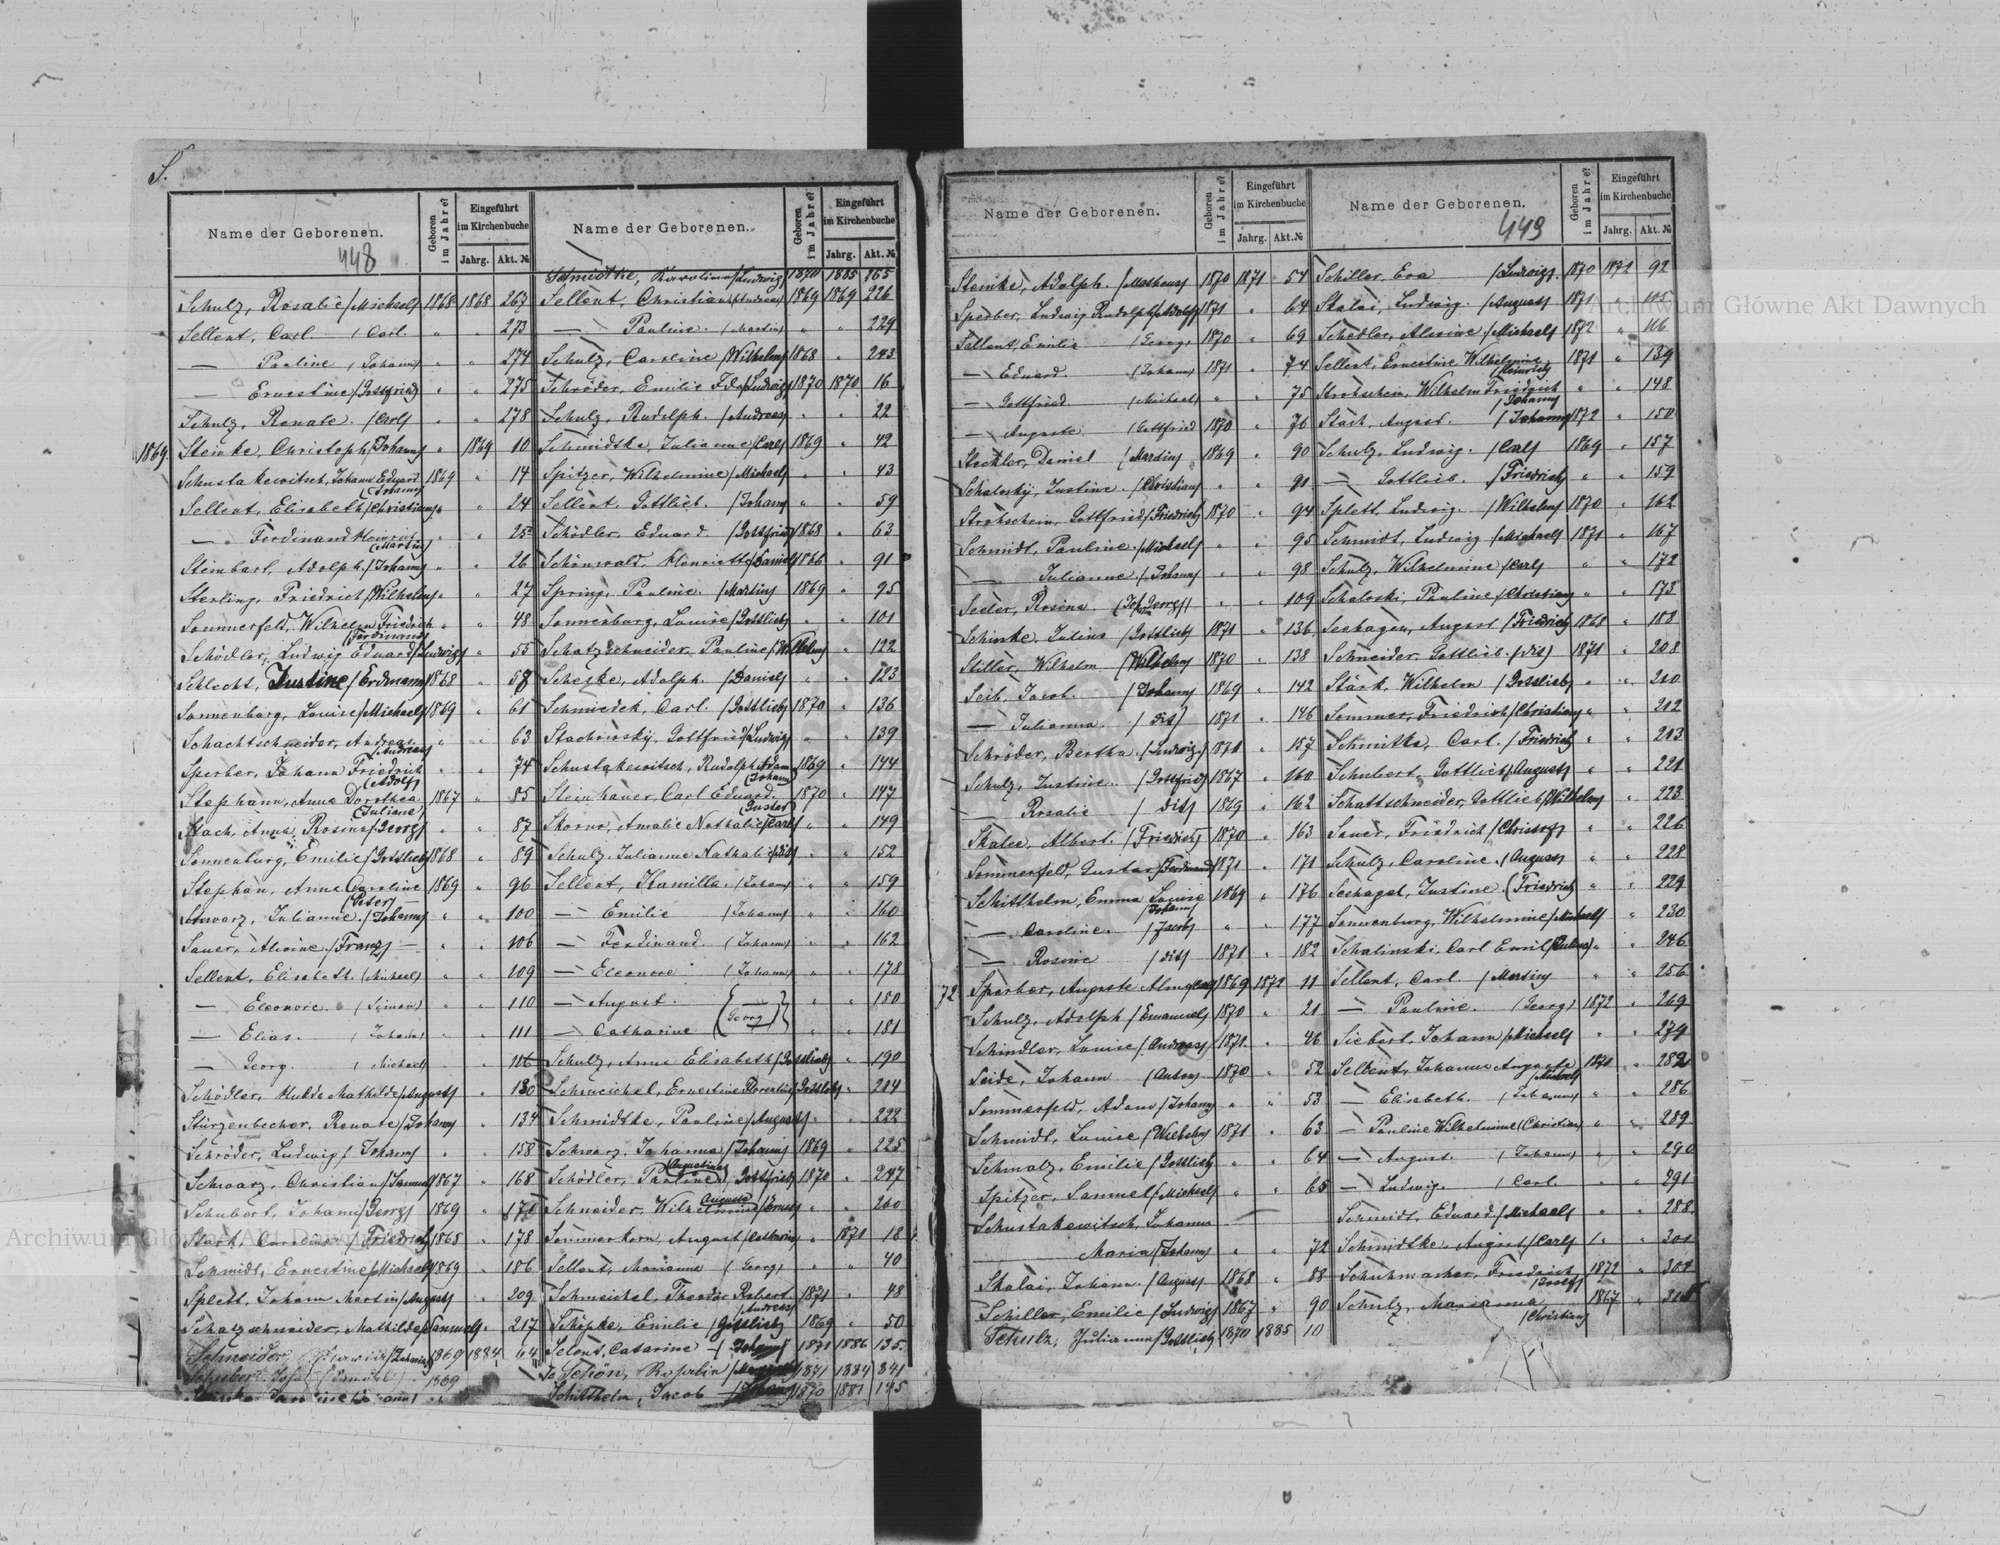 S.
Name der Geborenen.
448
Geboren im Jahre?
Eingeführt im Kirchenbuche
Jahrg. Akt. №
Schulz, Rosalie /Michael/ 1868 1868 267
Sellent, Carl /Carl " " 273
— Pauline /Johann/ " " 274
— Ernestine /Gottfried/ " " 275
Schulz, Renate. /Carl/ " " 278
1869. Steinke, Christoph /Johann/ " 1869 10
Schustakewitsch, Johann Eduard /Johann/ 1869 " 14
Sellent, Elisabeth /Christian/ " " 24
— Ferdinand Heinrich /Martin/ " " 25
Steinbart, Adolph /Johann/ " " 26
Sterling, Friedrich /Wilhelm/ " " 27
Sommerfeld, Wilhelm Friedrich /Ferdinand/ " " 48
Schödler, Ludwig Eduard /Ludwig/ " 55
Schlecht, Justine /Erdmann/ 1868 " 58
Sonnenburg, Louise /Michael/ 1869 " 61
Schachtschneider, Andreas /Andreas/ " " 63
Sperber, Johann Friedrich /Adolf/ " " 74
Stephann, Anna Dorothea /Juliane/ 1867 " 85
Stach, Anna Rosina /Georg/ " " 87
Sonnenburg, Emilie /Gottlieb/ 1868 " 89
Stephan, Anna Caroline /Peter/ 1869 " 96
Schwarz, Julianne /Johann/ " " 100
Sauer, Alwine /Franz/ — " " 106
Sellent, Elisabeth /Michael/ " " 109
— Eleonore " " 110
— Elias. /Johann/ " " 111
— Georg. /Michael/ " " 116
Schödler, Hulda Mathilde /August/ " 130
Stürzenbecher, Renate /Johann/ " 134
Schröder, Ludwig /Johann/ " " 158
Schwarz, Christian /Samuel/ 1867 " 168
Schubert, Johann /Georg/ 1869 " 171
Stark, /Friedrich/ 1868 " 178
Schmidt, Ernestine /Michael/ 1869 " 186
Splett, Johann Martin /August/ " 209
Schatzschneider, Mathilde /Samuel/ " 217
Schneider 1869 1884 64
Schubert, 1869
Name der Geborenen.
Geboren im Jahre?
Eingeführt im Kirchenbuche
Jahrg. Akt. №
Schmidtke, Karolina /Ludwig/ 1870 1885 265
Sellent, Christian /Andreas/ 1869 1869 226
— Pauline. /Martin/ " " 229
Schulz, Caroline /Wilhelm/ 1868 " 243
Schröder, Emilie Ida /Ludwig/ 1870 1870 16
Schulz, Rudolph. /Andreas/ " " 22
Schmidtke, Julianne /Carl/ 1869 " 42
Spitzer, Wilhelmine /Michael/ " " 43
Sellent, Gottlieb. /Johann/ " " 59
Schödler, Eduard /Gottfried/ 1868 " 63
Schönwald, Henriette /Daniel/ 1866 " 91
Spring, Pauline. /Martin/ 1869 " 95
Sonnenburg, Louise /Gottlieb/ " " 101
Schatzschneider, Pauline /Wilhelm/ " 122
Scheske, Adolph. /Daniel/ " " 123
Schmiedek, Carl. /Gottlieb/ 1870 " 136
Stachowsky, Gottfried /Ludwig/ " " 139
Schustakewitsch, Rudolph Adam /Johann/ 1869 " 144
Steinhauer, Carl Eduard. /Gustav/ 1870 " 147
Skorno, Amalie Nathalie /Carl/ " " 149
Schulz, Julianne Nathalie /dit/ " " 152
Sellent, Kamilla. /Johann/ " " 159
— Emilie /Johann/ " " 160
— Ferdinand. /Johann/ " " 162
— Eleonore /Johann/ " " 178
— August. { — } " " 180
— Catharine {Georg} " " 181
Schulz, Anna Elisabeth /Gottlieb/ " 190
Schmeichel, Ernestine Florentine /Gottlieb/ " 214
Schmidtke, Pauline /August/ " " 222
Schwarz, Johanna /Johann/ 1869 " 225
Schödler, Pauline (Augustine) /Gottfried/ 1870 " 247
Schneider, Wilhelmine Auguste /Ernst/ " " 260
Sommerkorn, August /Catharine/ " 1871 18
Sellent, Marianne /Georg/ " " 40
Schmeichel, Theodor Robert /Andreas/ 1871 " 48
Schipke, Emilie /Gottlieb/ 1869 " 50
Selent, Catarine — /Johann/ 1871 1886 135
Schön, Rosalia 1871 1884 341
Schilthelm, Jacob — /Johann/ 1870 1887 195
Name der Geborenen.
Geboren im Jahre?
Eingeführt im Kirchenbuche
Jahrg. Akt. №
Steinke, Adolph. /Matheus/ 1870 1871 54
Sperber, Ludwig Rudolph /Adolf/ 1871 " 64
Sellent, Emilie /Georg/ 1870 " 69
— Eduard /Johann/ 1871 " 74
— Gottfried /Michael/ " " 75
— Auguste /Gottfried 1870 " 76
Steckler, Daniel /Martin/ 1869 " 90
Schalosky, Justine. /Christian/ " " 91
Strohschein, Gottfried /Friedrich/ 1870 " 94
Schmidt, Pauline. /Michael/ " " 95
— Julianne /Johann/ " " 98
Seeler, Rosina " " 109
Schinke, Julius /Gottlieb/ 1871 " 136
Stiller, Wilhelm /Wilhelm/ 1870 " 138
Seib, Jacob. /Johann/ 1869 " 142
— Julianna. /dit/ 1871 " 146
Schröder, Bertha. /Ludwig/ 1871 " 157
Schulz, Justine. /Gottfried/ 1867 " 160
— Rosalie /dit/ 1869 " 162
Skalee, Albert. /Friedrich/ 1870 " 163
Sommerfeld, Gustav /Ferdinand/ 1871 " 171
Schilthelm, Emma Louise /Johann/ 1869 " 176
— Caroline. /Jacob/ " " 177
— Rosine /dit/ 1871 " 182
72 Sperber, Auguste Alma 1869 1872 11
Schulz, Adolph /Emanuel/ 1870 " 21
Schindler, Louise /Andreas/ 1871 " 46
Seide, Johann /Anton/ 1870 " 52
Sommerfeld, Adam /Johann/ " " 53
Schmidt, Louise /Wilhelm/ 1871 " 63
Schmalz, Emilie /Gottlieb/ " " 64
Spitzer, Samuel /Michael/ " " 65
Schustakewitsch, Johanna
Maria /Johann/ " " 72
Skalai, Johann. /August/ 1868 " 88
Schiller, Emilie /Ludwig/ 1867 " 90
Schulz, Julianna /Gottlieb/ 1870 1885 10
Name der Geborenen.
449
Geboren im Jahre?
Eingeführt im Kirchenbuche
Jahrg. Akt. №
Schiller, Eva /Ludwig/ 1870 1872 92
Skalai, Ludwig. /August/ 1871 " 115
Schedler, Alwine /Michael/ 1872 " 116
Sellent, Ernestine Wilhelmine /Heinrich/ 1871 " 139
Strohschein, Wilhelm Friedrich /Johann/ " " 148
Stach, August. /Johann/ 1872 " 150
Schulz, Ludwig. /Carl/ 1869 " 157
— Gottlieb. /Friedrich/ " " 159
Splett, Ludwig. /Wilhelm/ 1870 " 162
Schmidt, Ludwig /Michael/ 1871 " 167
Schulz, Wilhelmine /Carl/ " " 172
Schaloski, Pauline /Christian/ " " 173
Seehagen, August /Friedrich/ 1868 " 188
Schneider, Gottlieb. /dit/ 1871 " 208
Stärk, Wilhelm /Gottlieb/ " " 210
Sommer, Friedrich /Christian/ " " 212
Schmitke, Carl. /Friedrich/ " " 213
Schubert, Gottlieb /August/ " " 221
Schattschneider, Gottlieb /Wilhelm/ " 223
Sauer, Friedrich /Christof/ " " 226
Schulz, Caroline. /August/ " " 228
Seehagel, Justine /Friedrich/ " " 229
Sonnenburg, Wilhelmine /Michael/ " 230
Schalinski, Carl Emil " " 246
Sellent, Carl. /Martin/ " " 256
— Pauline. /Georg/ 1872 " 269
Siebert, Johann /Michael/ " " 279
Sellent, Johanna Auguste /Michael/ 1871 " 282
— Elisabeth. /Johann/ " " 286
— Pauline Wilhelmine /Christian/ " " 289
— August. /Johann/ " " 290
— Ludwig. /Carl " " 291
Schmidt, Eduard /Michael/ " " 288
Schmidtke, August /Carl/ " " 301
Schuhmacher, Friedrich /Josef/ 1872 " 304
Schulz, Marianna /Christian/ 1867 "
Archiwum Główne Akt Dawnych
Archiwum Główne Akt Dawnych